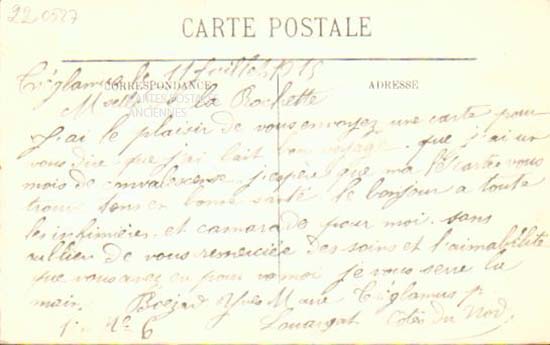 220527
CARTE POSTALE
CORRESPONDANCE
ADRESSE
CARTES POSTALES
ANCIENNES
Tréglamus le 11 Juillet 1915
Melle de la Rochette
J'ai le plaisir de vous envoyez une carte pour
vous dire que j'ai fait bon voyage. que j'ai un
mois de convalescence j'espère que ma carte vous
trouv en bonne santé le bonjour a toute
les infirmières et camarade pour moi. sans
oublier de vous remerciée des soins et l'aimabélité
que vous avez eu pour moi je vous serre la
main. Yves Marie Tréglamus p
Louargat Côtes du Nord